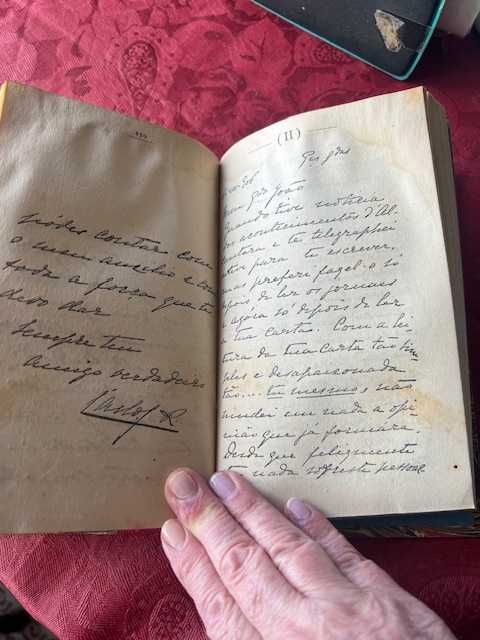 pódes contar com
o meu auxilio e com
toda a força que te
devo dar
Sempre teu
amigo verdadeiro
Carlos R
(II)
João
Quando tive noticia
dos acontecimentos d'Al-
cantara e te telegraphei
estive para te escrever,
mas preferi fazel-o só
depois de ler os jornaes
e agora só depois de ler
a tua carta. Com a lei-
tura da tua carta tão sim-
ples e desapaixonada
tão... tu mesmo, não
mudei em nada a opi-
nião que já formára.
Desde que felizmente
tu nada sofreste pessoal